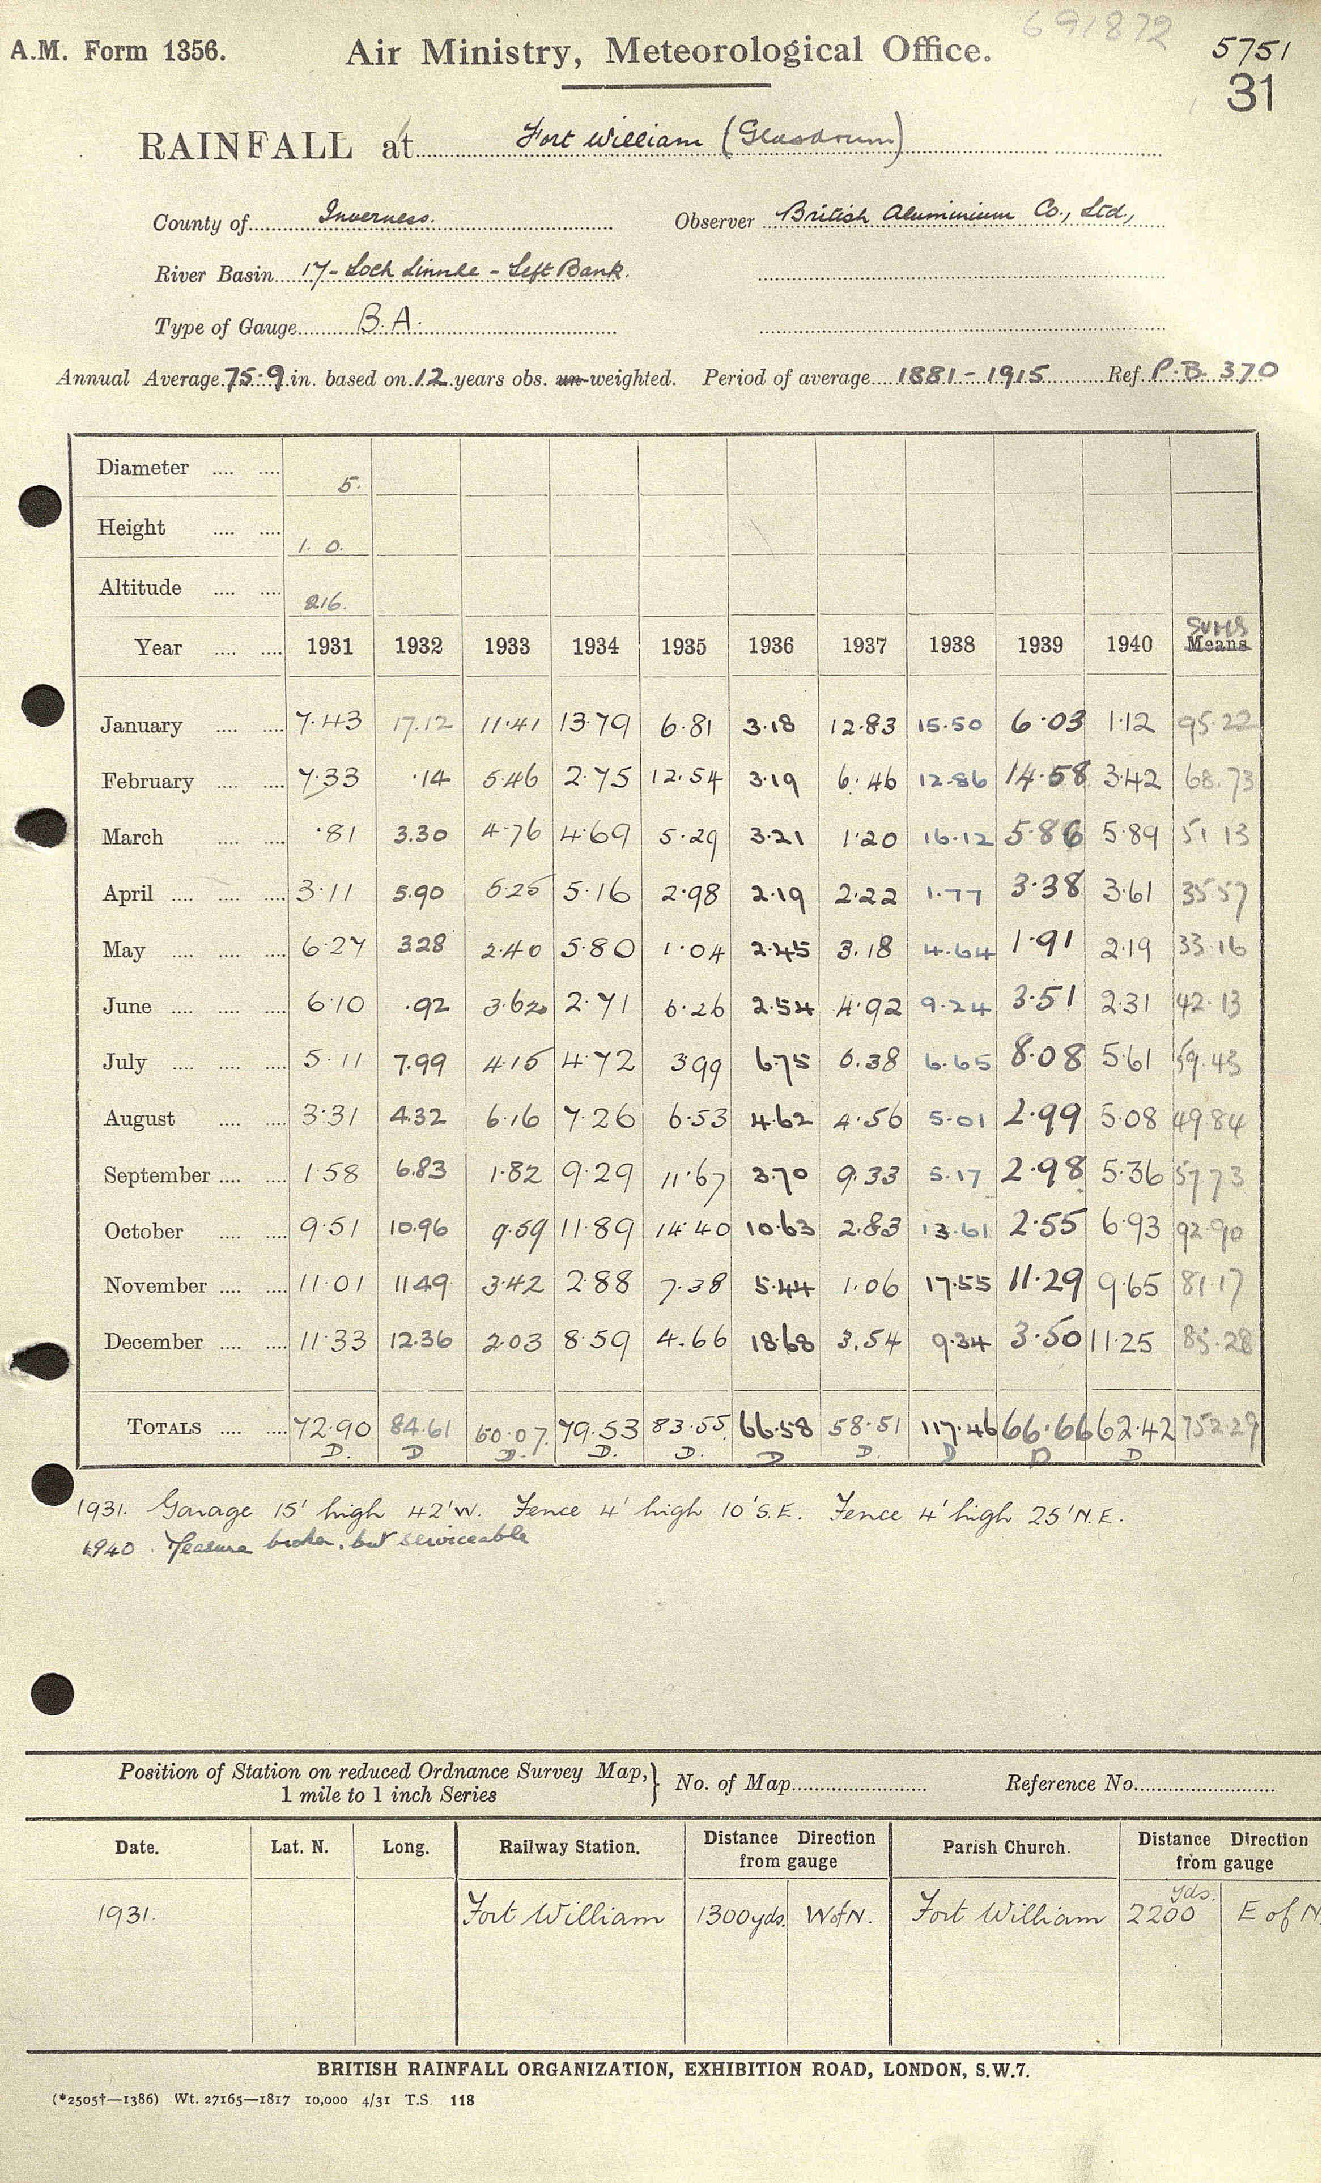 691872
A.M. Form 1356. Air Ministry, Meteorological Office. 5751
31
RAINFALL at Fort William (Glasdrum)
County of Inverness. Observer British Aluminium Co., Ltd,
River Basin 17 - Loch Linnhe - Left Bank.
Type of Gauge B.A.
Annual Average 75.9 in. based on 12 years obs. un-weighted. Period of average 1881-1915 Ref. P.B. 370
Diameter 5.
Height 1. 0.
Altitude 216.
Sums
Year 1931 1932 1933 1934 1935 1936 1937 1938 1939 1940 Means
January 7.43 17.12 11.41 13.79 6.81 3.18 12.83 15.50 6.03 1.12 95.22
February 7.33 .14 5.46 2.75 12.54 3.19 6.46 12.86 14.58 3.42 68.73
March .81 3.30 4.76 4.69 5.29 3.21 1.20 16.12 5.86 5.89 51 13
April 3.11 5.90 5.25 5.16 2.98 2.19 2.22 1.77 3.38 3.61 35.57
May 6.27 3.28 2.40 5.80 1.04 2.45 3.18 4.64 1.91 2.19 33.16
June 6.10 .92 3.62 2.71 6.26 2.54 4.92 9.24 3.51 2.31 42.13
July 5.11 7.99 4.15 4.72 3.99 6.75 6.38 6.65 8.08 5.61 59.43
August 3.31 4.32 6.16 7.26 6.53 4.62 4.56 5.01 2.99 5.08 49.84
September 1.58 6.83 1.82 9.29 11.67 3.70 9.33 5.17 2.98 5.36 57.73
October 9.51 10.96 9.59 11.89 14.40 10.63 2.83 13.61 2.55 6.93 92.90
November 11.01 11.49 3.42 2.88 7.38 5.44 1.06 17.55 11.29 9.65 81.17
December 11.33 12.36 2.03 8.59 4.66 18.68 3.54 9.34 3.50 11.25 85.28
TOTALS 72.90 84.61 60.07 79.53 83.55 66.58 58.51 117.46 66.66 62.42 752.29
D. D D. D. D. D D. D D D
1931. Garage 15' high 42' W. Fence 4' high 10' S.E. Fence 4' high 25' N.E.
1940. Measure broken, but serviceable
Position of Station on reduced Ordnance Survey Map, 1 mile to 1 inch Series } No. of Map Reference No.
Date. Lat. N. Long. Railway Station. Distance Direction from gauge Parish Church. Distance Direction from gauge
1931. Fort William 1300yds. W of N. Fort William 2200 yds. E of N.
BRITISH RAINFALL ORGANIZATION, EXHIBITION ROAD, LONDON, S.W.7.
(*2505†—1386) Wt. 27165—1817 10,000 4/31 T.S. 118